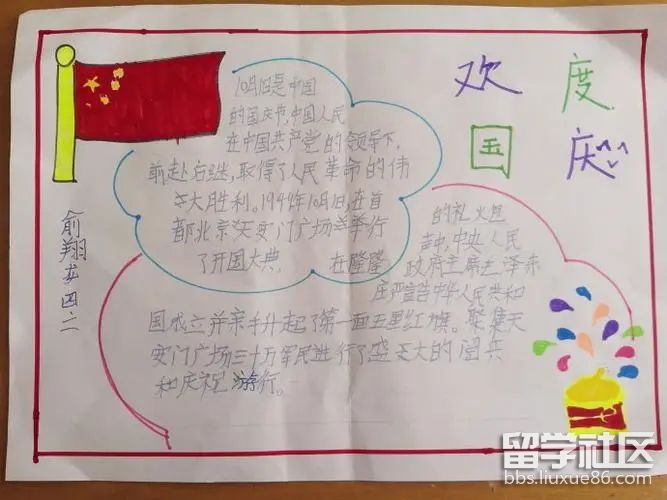 欢度
国庆
10月1日是中国
的国庆节,中国人民
在中国共产党的领导下,
前赴后继,取得了人民革命的伟
大胜利。1949年10月1日,在首
都北京天安门广场举行
了开国大典,在隆隆
的礼火包
声中,中央人民
政府主席毛泽东
庄严宣告中华人民共和
国成立并亲手升起了第一面五星红旗。聚集天
安门广场三十万军民进行了盛大的阅兵
和庆祝游行。
俞翔 四二
留学社区
bbs.liuxue86.com